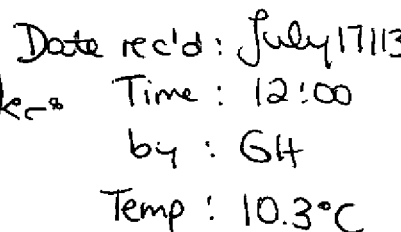 Date rec'd: July 17/13
Time: 12:00
by: GH
Temp: 10.3°C